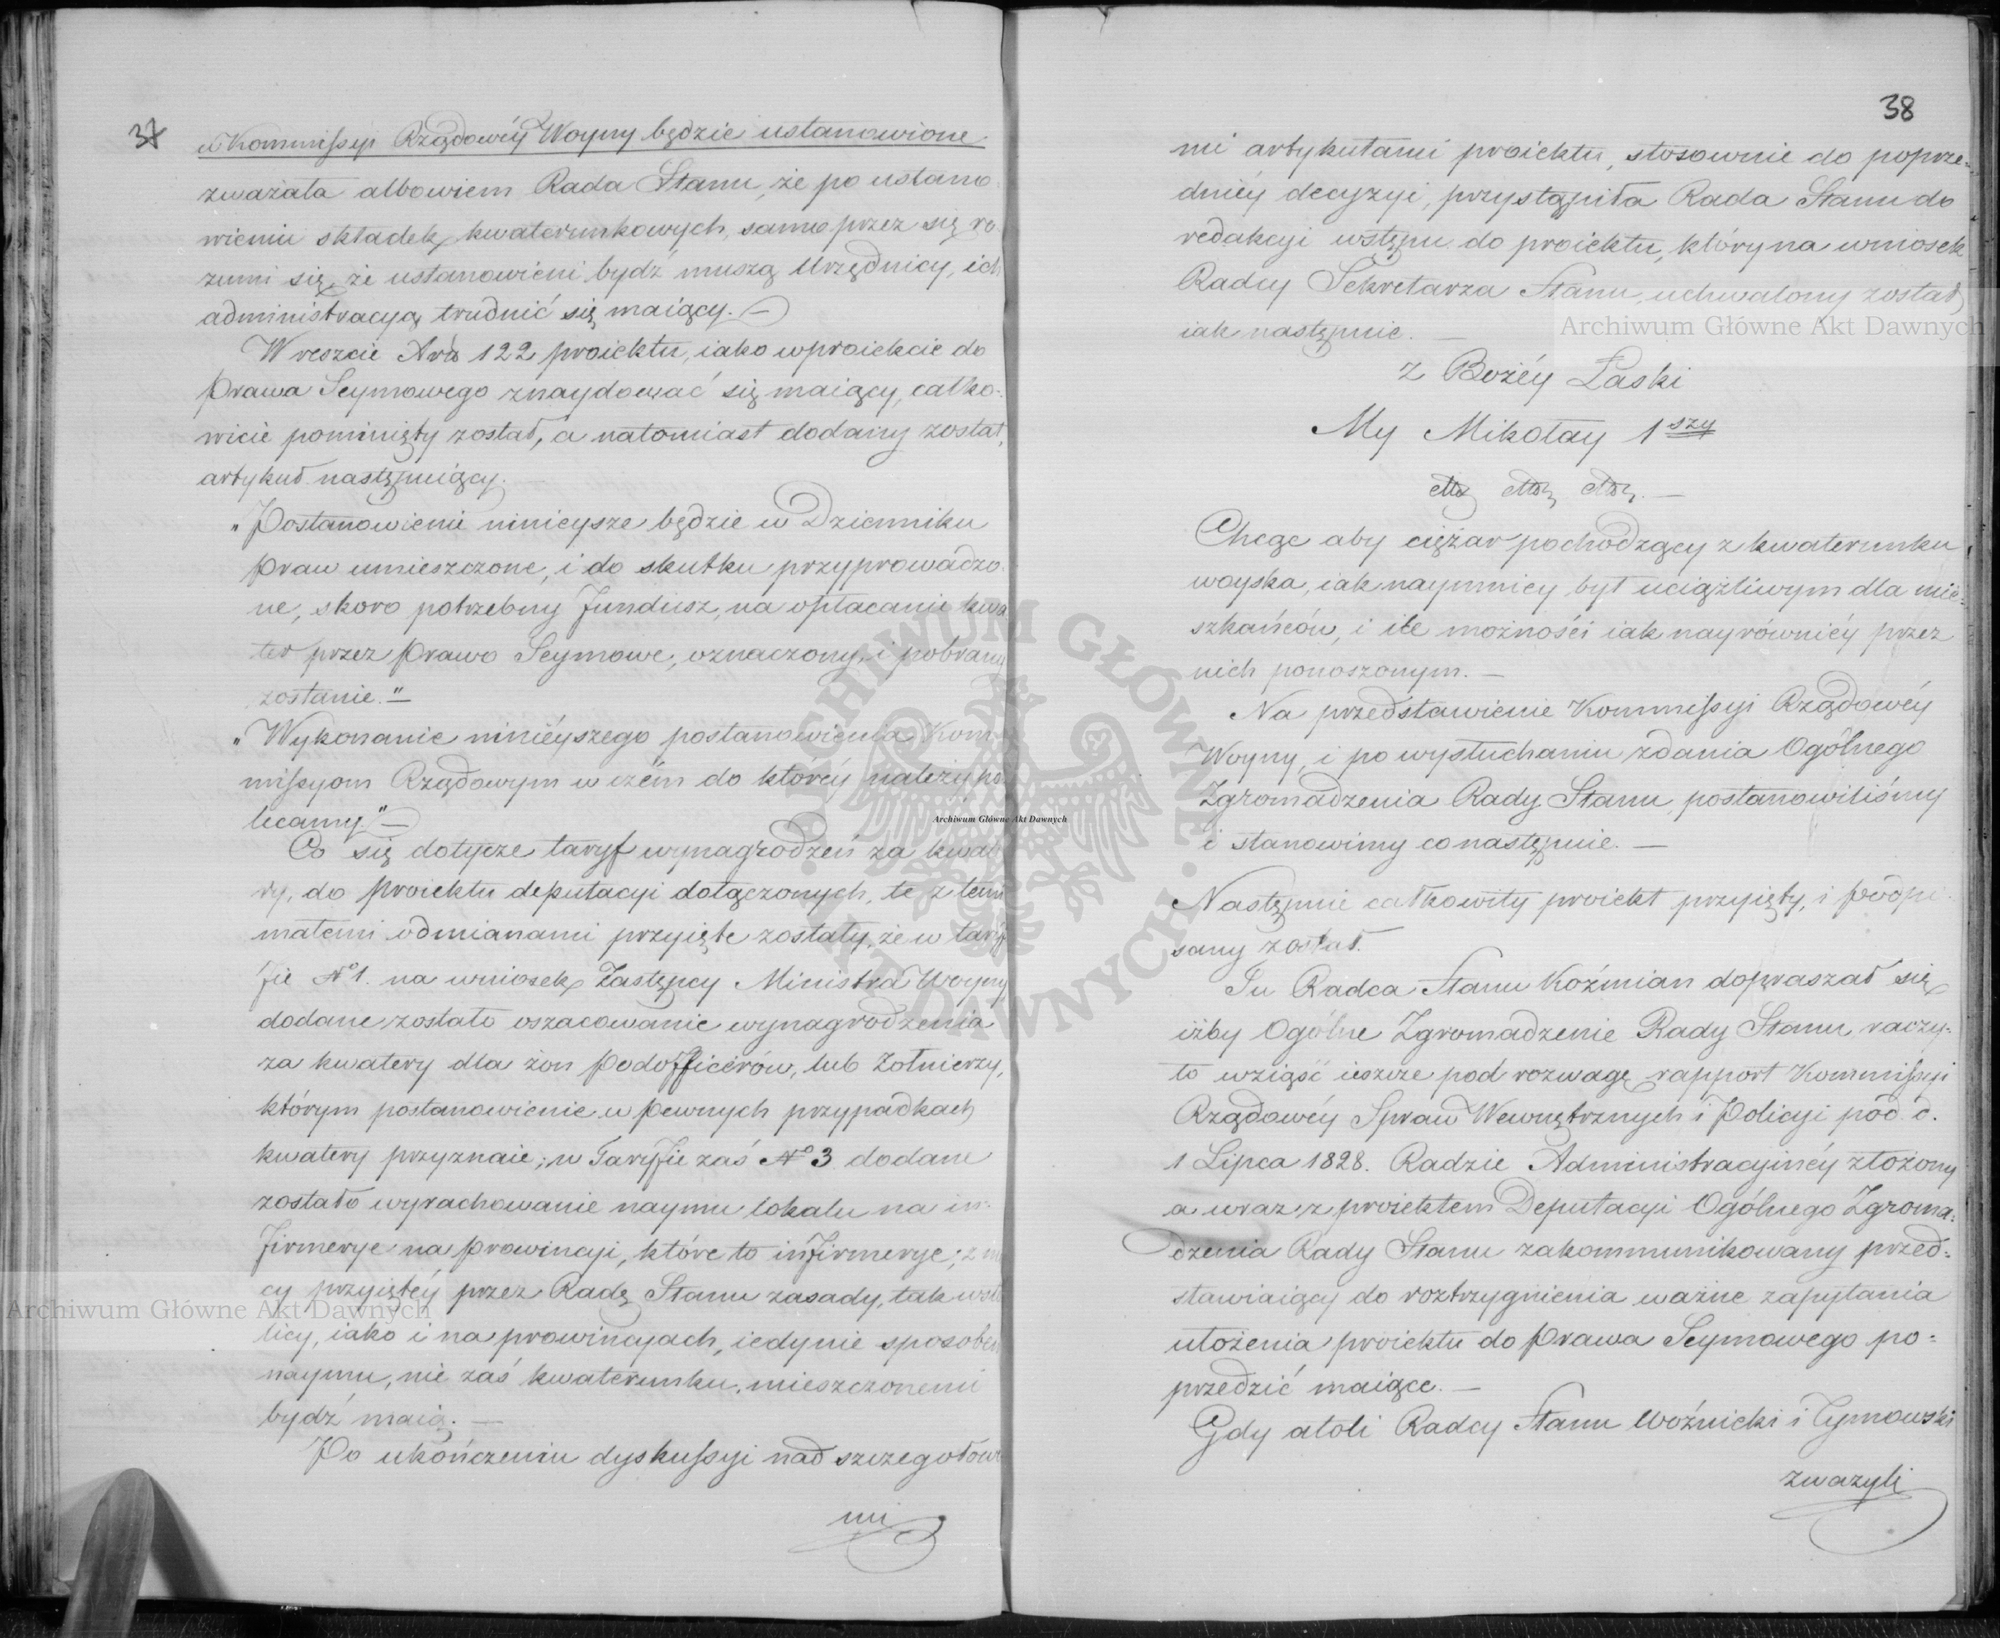 37
w Kommissyi Rządowéy Woyny będzie ustanowione
zważała albowiem Rada Stanu, że po ustano
wieniu składek kwaterunkowych, samo przez się ro
zumi się, że ustanowieni bydź muszą Urzędnicy, ich
administracyą trudnić się maiący. —
Wreszcie Art 122 proiektu, iako w proiekcie do
Prawa Seymowego znaydować się maiący, całko-
wicie pominięty został, a natomiast dodany został,
artykuł następuiący. —
"Postanowienie ninieysze będzie w Dzienniku
Praw umieszczone, i do skutku przyprowadzo-
ne, skoro potrzebny Fundusz, na opłacanie kwa
ter przez Prawo Seymowe, oznaczony, i pobrany
zostanie." —
"Wykonanie ninieyszego postanowienia Kom-
missyom Rządowym w czém do któréy należy po
lecamy" —
Co się dotycze taryf wynagrodzeń za kwate
ry, do proiektu deputacyi dołączonych, te z temi
małemi odmianami przyięte zostały, że w tary
fie No 1. na wniosek Zastępcy Ministra Woyny
dodane zostało oszacowanie wynagrodzenia
za kwatery dla żon Podofficerów, lub Żołnierzy,
którym postanowienie w pewnych przypadkach
kwatery przyznaie; w Taryfie zaś No 3 dodane
zostało wyrachowanie naymu lokalu na in-
firmerye na prowincyi, które to infirmerye, z mo
cy przyiętéy przez Radę Stanu zasady, tak w sto
licy, iako i na prowincyach, iedynie sposobem
naymu, nie zaś kwaterunku, mieszczonemi
bydź maią. —
Po ukończeniu dyskussyi nad szczegółowe
mi
38
mi artykułami proiektu, stosownie do poprze-
dniéy decyzyi, przystąpiła Rada Stanu do
redakcyi wstępu do proiektu, który na wniosek
Radcy Sekretarza Stanu, uchwalony został
iak następuie. —
Z Bożéy Łaski
My Mikołay 1szy
etta etta etta. —
Chcąc aby ciężar pochodzący z kwaterunku
woyska, iak naymniey był uciążliwym dla mie-
szkańców, i ile możności iak nayrówniéy przez
nich ponoszonym. —
Na przedstawienie Kommissyi Rządowéy
Woyny, i po wysłuchaniu zdania Ogólnego
Zgromadzenia Rady Stanu postanowiliśmy
i stanowimy co następuie. —
Następnie całkowity proiekt przyięty, i podpi-
sany został.
Tu Radca Stanu Koźmian dopraszał się
iżby Ogólne Zgromadzenie Rady Stanu raczy-
ło wziąść ieszcze pod rozwagę rapport Kommissyi
Rządowéy Spraw Wewnętrznych i Policyi pod d.
1 Lipca 1828. Radzie Administracyinéy złożony
a wraz z proiektem Deputacyi Ogólnego Zgroma-
dzenia Rady Stanu zakommunikowany przed-
stawiaiący do roztrzygnienia ważne zapytania
ułożenia proiektu do Prawa Seymowego po-
przedzić maiące. —
Gdy atoli Radcy Stanu Woźnicki i Tymowski
zważyli
Archiwum Główne Akt Dawnych
Archiwum Główne Akt Dawnych
Archiwum Główne Akt Dawnych
ARCHIWUM GŁÓWNE AKT DAWNYCH